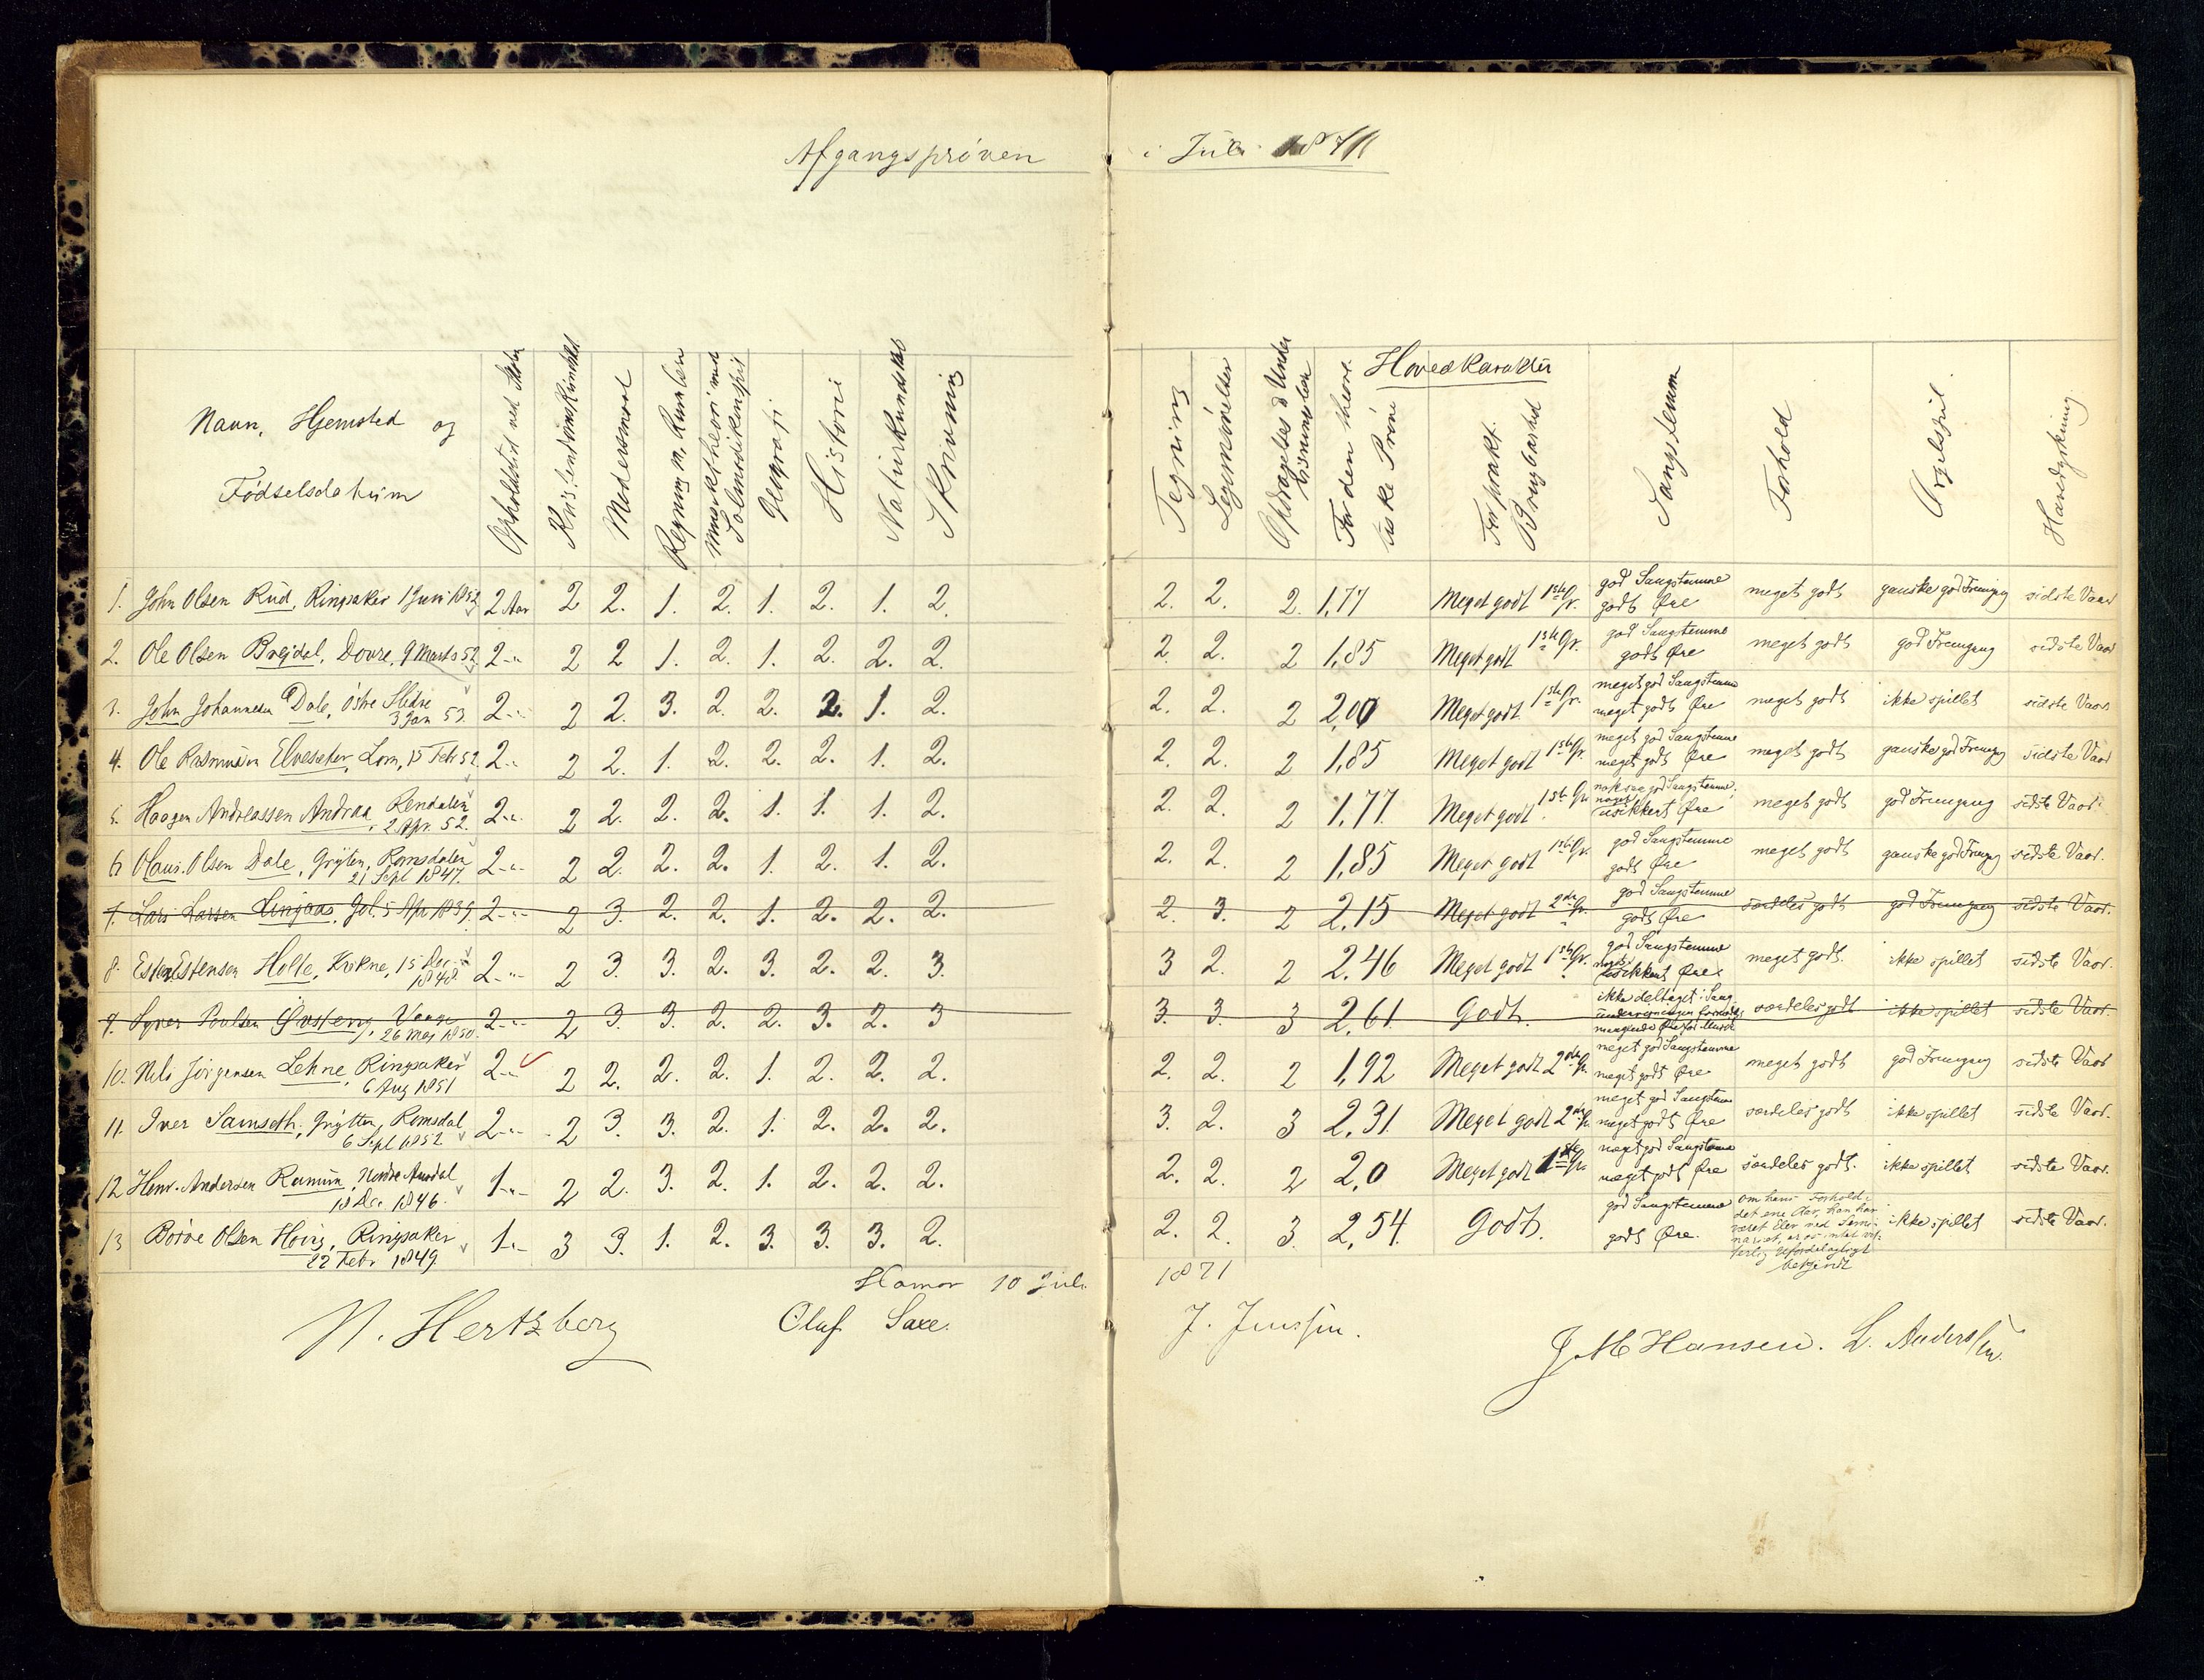 Afgangsprøven i Juli 1871
Navn, Hjemsted og Fødselsdatum
Opholdstid ved Skolen
Kristendomskundskab
Modersmaal
Regning m. Rumlere
Musiktheori med Salmodikonspil
Geografi
Historie
Naturkundskab
Skrivning
Tegning
Legemsøvelser
Opdragelses & Undervisningslære
Hovedkarakter
For den theoretiske Prøve
For prakt. Brugbarhed
Sangstemme
Forhold
Orgelspil
Handyrkning
1. John Olsen Rud, Ringsaker 1 Juni 1852 2 Aar 2 2. 1. 2. 1. 2. 1. 2. 2. 2. 2. 1,77 Meget godt 1ste Gr. god Sangstemme godt Øre meget godt ganske god Fremgang sidste Vaar
2. Ole Olsen Brejdal, Dovre, 9 Marts 52 2 -"- 2 2 1. 2. 1. 2. 2. 2. 2. 2. 2 1,85 Meget godt 1ste Gr. god Sangstemme godt Øre meget godt god Fremgang sidste Vaar
3. John Johannesen Dale, Østre Slidre 3 Jan 53. 2 -"- 2 2. 3. 2. 2. 2. 1. 2. 2. 2. 2 2,00 Meget godt 1ste Gr. meget god Sangstemme meget godt Øre meget godt ikke spillet sidste Vaar
4. Ole Rasmussen Elvesæter, Lom, 15 Febr 52. 2 -"- 2 2. 1. 2. 2. 2. 1. 2. 2. 2. 2 1,85 Meget godt 1ste Gr. meget god Sangstemme meget godt Øre meget godt ganske god Fremgang sidste Vaar
5. Haagen Andreassen Andraa, Rendalen 2 Apr. 52. 2 -"- 2 2. 2. 2. 1. 1. 1. 2. 2. 2. 2 1,77. Meget godt 1ste Gr. noksaa god Sangstemme, noget usikkert Øre meget godt god Fremgang sidste Vaar.
6 Olaus Olsen Dale, Grytten, Romsdalen 21 Sept 1847. 2 -"- 2 2. 2. 2. 1. 2. 1. 2. 2. 2. 2 1,85 Meget godt 1ste Gr. god Sangstemme godt Øre meget godt ganske god Fremgang sidste Vaar.
7. Lars Larsen Lingaas, Gol. 5 Apr 1839. 2 -"- 2 3. 2. 2. 1. 2. 2. 2. 2. 3. 2 2,15 Meget godt 2den Gr. god Sangstemme godt Øre særdeles godt god Fremgang sidste Vaar.
8. Esten Estensen Holte, Kvikne, 15 Dec. 1848 2 -"- 2 3. 3. 2. 3. 2. 2. 3. 3 2. 2 2,46 Meget godt 1ste Gr. god Sangstemme noget usikkert Øre meget godt. ikke spillet sidste Vaar.
9. Syver Poulsen Gusteng, Vaage 26 Maj 1850. 2 -"- 2 3. 3. 2. 2. 3. 2. 3 3. 3. 3 2,61. Godt. ikke deltaget i Sangundervisningen formedelst manglende Øre for Musik særdeles godt ikke spillet sidste Vaar.
10. Nils Jörgensen Lehne, Ringsaker 6 Aug 1851 2 -"- 2 2. 2. 2. 1. 2. 2. 2. 2. 2. 2 1,92 Meget godt 2den Gr. meget god Sangstemme meget godt Øre meget godt god Fremgang sidste Vaar
11. Iver Samseth, Grytten, Romsdal 6 Sept 1852. 2 -"- 2 3. 3. 2. 1. 2. 2. 2. 3. 2. 3 2,31. Meget godt 2den Gr. meget god Sangstemme meget godt Øre særdeles godt ikke spillet sidste Vaar.
12 Henr. Andersen Ranum, Nordre Aurdal 18 Dec. 1846. 1 -"- 2 2. 3. 2. 1. 2. 2. 2. 2. 2. 2 2,0 Meget godt 1ste Gr. meget god Sangstemme meget godt Øre særdeles godt. ikke spillet sidste Vaar.
13 Borve Olsen Hovis, Ringsaker 22 Febr 1849. 1 -"- 3 3. 1. 2. 3. 3. 3. 2. 2. 2. 3. 2,54. Godt. god Sangstemme godt Øre. om hans Forhold i det ene Aar, han har været Elev ved Seminariet, er os intet væsentlig Ufordelagtigt bekjendt ikke spillet sidste Vaar.
Hamar 10 Juli 1871
N. Hertzberg Olaf Saxe. J. Jenssen. J. M Hansen. L. Anderssen.